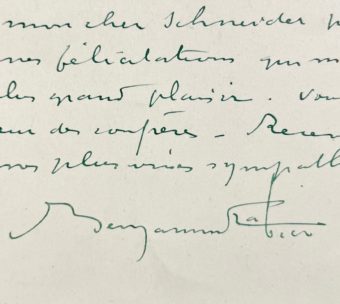 mon cher Schneider p
mes félicitations qui m
plus grand plaisir. Vou
eur des confrères - Recev
nos plus vives sympath
Benjamin Rabier